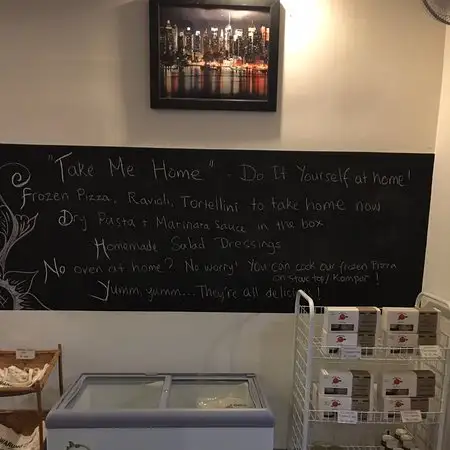 "Take Me Home" - Do It Yourself at home!
Frozen Pizza, Ravioli, Tortellini to take home now
Dry Pasta + Marinara Sauce in the box
Homemade Salad Dressings
No oven at home? No worry! You can cook our frozen Pizza
on stove top/ Kompor !
Yumm, yumm... They're all delicious!